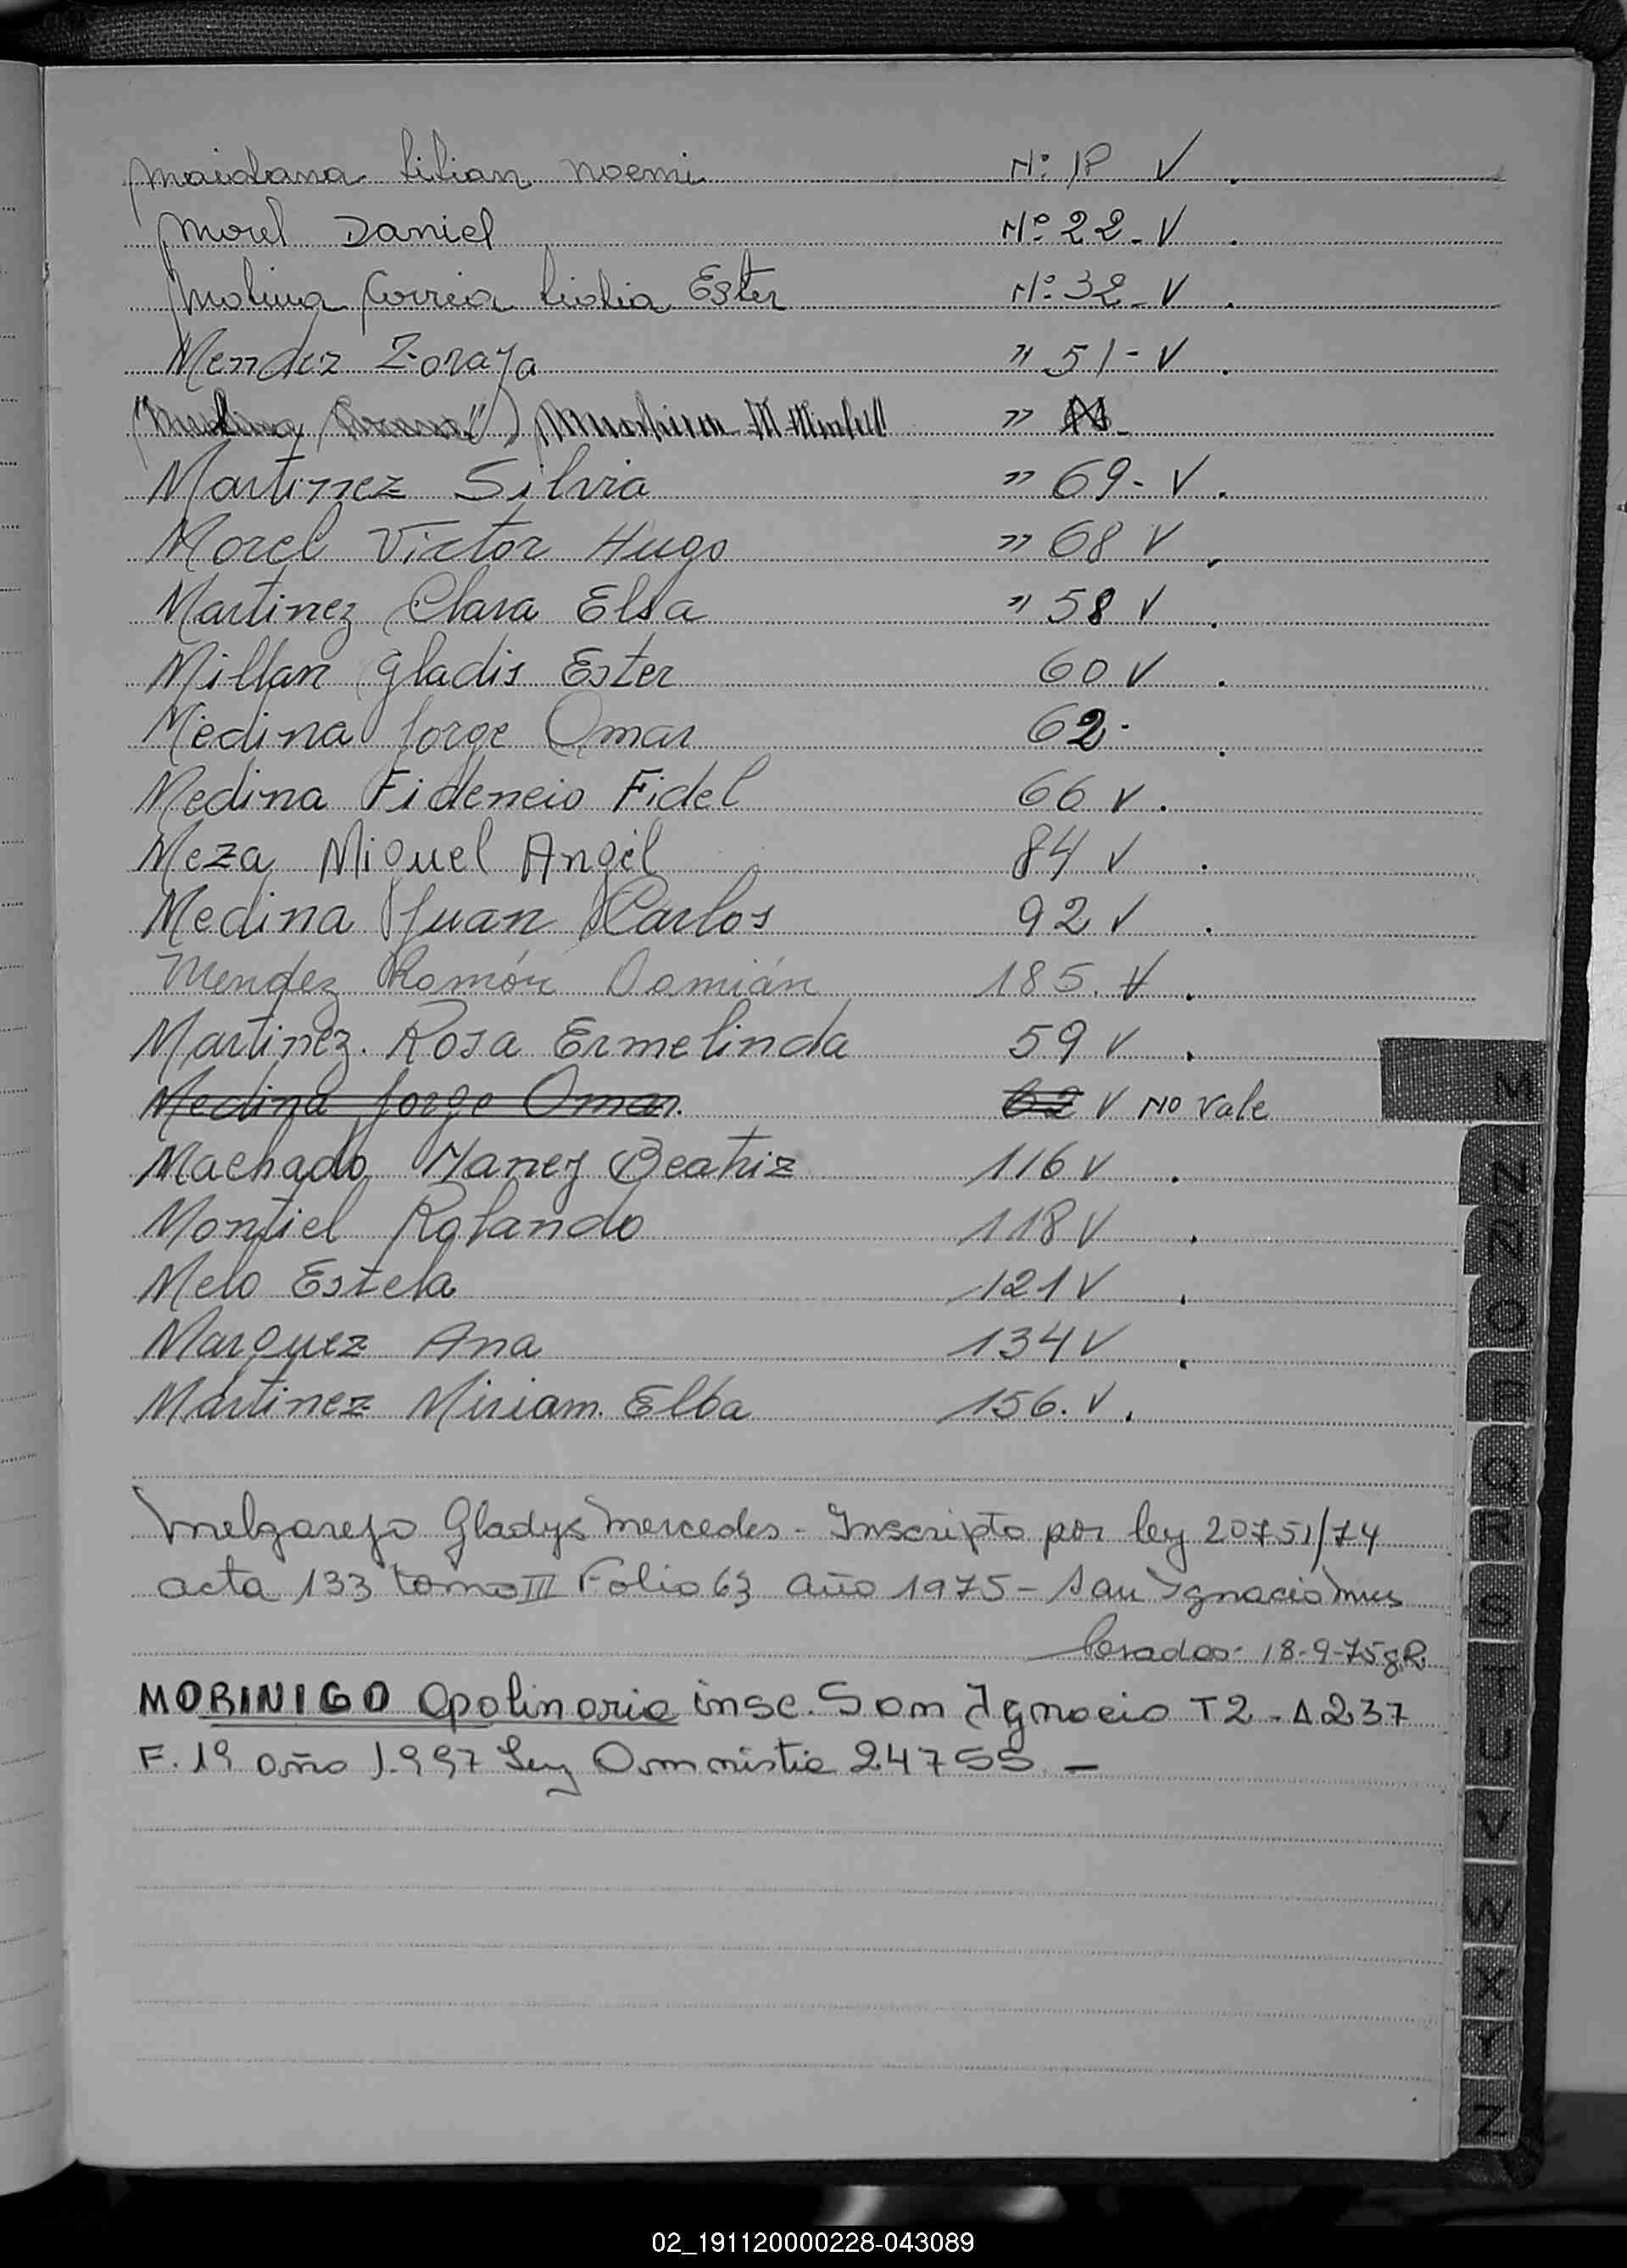 Maidana Lilian Noemi Nº 18 V .
Morel Daniel Nº 22 - V .
Molina Correa Lidia Ester Nº 32 - V .
Mendez Zoraya " 51 - V .
"
Martinez Silvia " 69 - V .
Morel Victor Hugo " 68 V .
Martinez Clara Elsa " 58 V .
Millan Gladis Ester 60 V .
Medina Jorge Omar 62 - .
Medina Fideneio Fidel 66 V .
Meza Miguel Angel 84 V .
Medina Juan Carlos 92 V .
Mendez Ramón Damián 185. V .
Martinez. Rosa Ermelinda 59 V .
Medina Jorge Omar. 62 V No vale
Machado Naney Beatriz 116 V .
Montiel Rolando 118 V .
Melo Estela 121 V .
Marquez Ana 134 V .
Martinez Miriam. Elba 156. V .
Melgarejo Gladys Mercedes - Inscripto por ley 20751/74
acta 133 tomo III Folio 63 año 1975 - San Ignacio Mnes
18-9-75
MORINIGO Apolinaria insc. San Ignacio T2 - A 237
F. 19 año 1.997 Ley Amnistia 24755 -
M
N
Ñ
O
P
Q
R
S
T
U
V
W
X
Y
Z
02_191120000228-043089